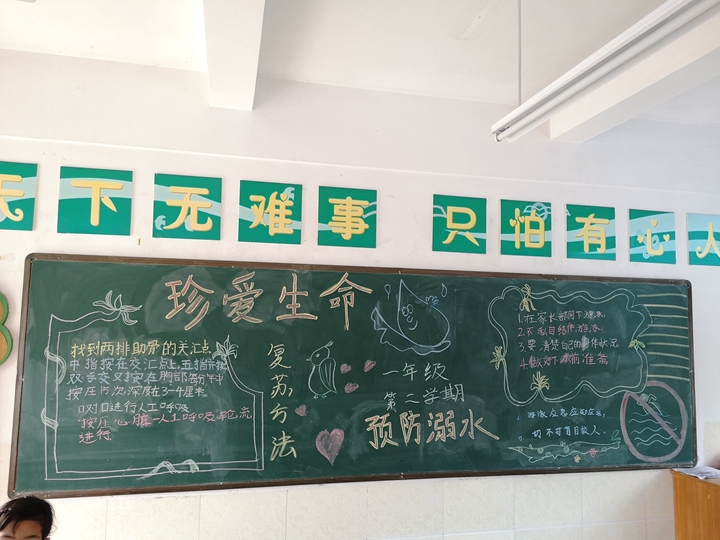 天下无难事 只怕有心人
珍爱生命
找到两排助骨的关汇点
中指按在交汇点上,五指并拢
双手交叉按在胸部
按压15次深度3-4厘米
口对口进行人工呼吸
按压心脏-人工呼吸轮流
进行
复苏方法
一年级
第二学期
预防溺水
1.在家长陪同下游泳。
2.不私自结伴游泳。
3.要清楚自己的身体状况
4.做好下水前准备
切不可盲目救人。